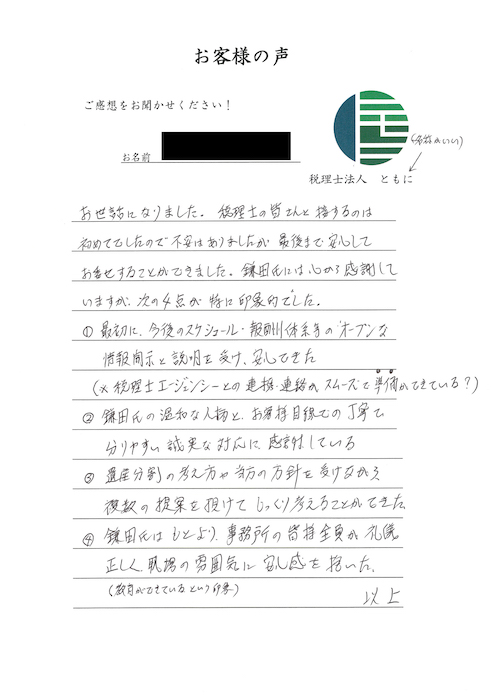 お客様の声
ご感想をお聞かせください！
お名前
(名称がいい)
税理士法人 ともに
お世話になりました。税理士の皆さんと接するのは
初めてでしたので不安はありましたが 最後まで安心して
お任せすることができました。鎌田氏には心から感謝して
いますが、次の4点が特に印象的でした。
① 最初に、今後のスケジュール・報酬体系等のオープンな
情報開示と説明を受け、安心できた
(※税理士エージェンシーとの連携・連絡がスムーズで準備ができている？)
② 鎌田氏の温和な人柄と、お客様目線での丁寧で
分りやすい誠実な対応に感謝している
③ 遺産分割の考え方や当方の方針を受けながら
複数の提案を頂けてじっくり考えることができた
④ 鎌田氏はもとより、事務所の皆様全員が礼儀
正しく、職場の雰囲気に安心感を抱いた。
(教育ができているという印象)
以上